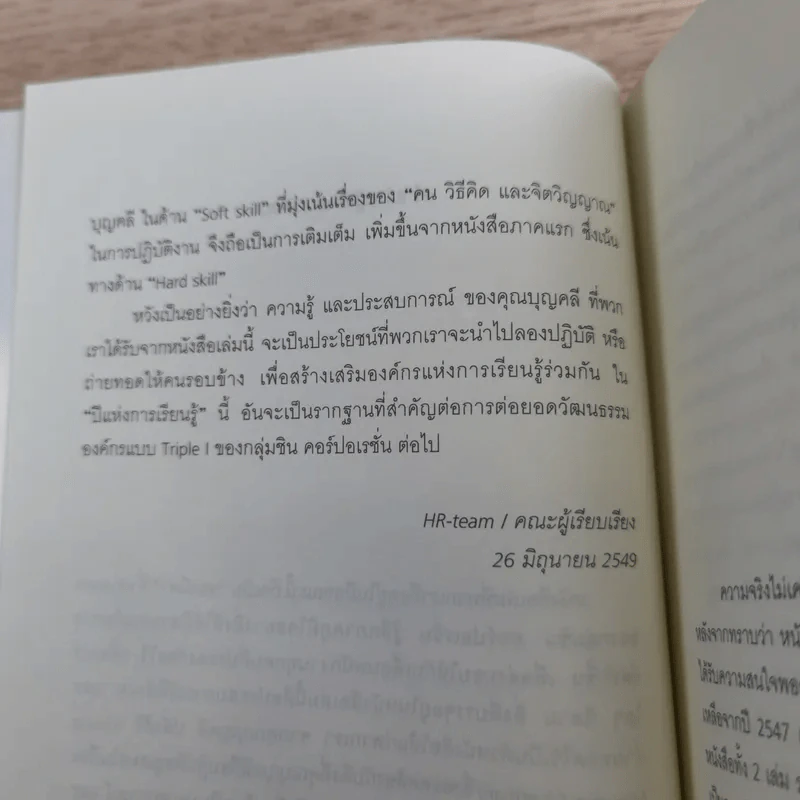 บุญคลี ในด้าน “Soft skill” ที่มุ่งเน้นเรื่องของ “คน วิธีคิด และจิตวิญญาณ”
ในการปฏิบัติงาน จึงถือเป็นการเติมเต็ม เพิ่มขึ้นจากหนังสือภาคแรก ซึ่งเน้น
ทางด้าน “Hard skill”
หวังเป็นอย่างยิ่งว่า ความรู้ และประสบการณ์ ของคุณบุญคลี ที่พวก
เราได้รับจากหนังสือเล่มนี้ จะเป็นประโยชน์ที่พวกเราจะนำไปลองปฏิบัติ หรือ
ถ่ายทอดให้คนรอบข้าง เพื่อสร้างเสริมองค์กรแห่งการเรียนรู้ร่วมกัน ใน
“ปีแห่งการเรียนรู้” นี้ อันจะเป็นรากฐานที่สำคัญต่อการต่อยอดวัฒนธรรม
องค์กรแบบ Triple I ของกลุ่มชิน คอร์ปอเรชั่น ต่อไป
HR-team / คณะผู้เรียบเรียง
26 มิถุนายน 2549
ความจริงไม่เค
หลังจากทราบว่า หนั
ได้รับความสนใจพอ
เหลือจากปี 2547
หนังสือทั้ง 2 เล่ม